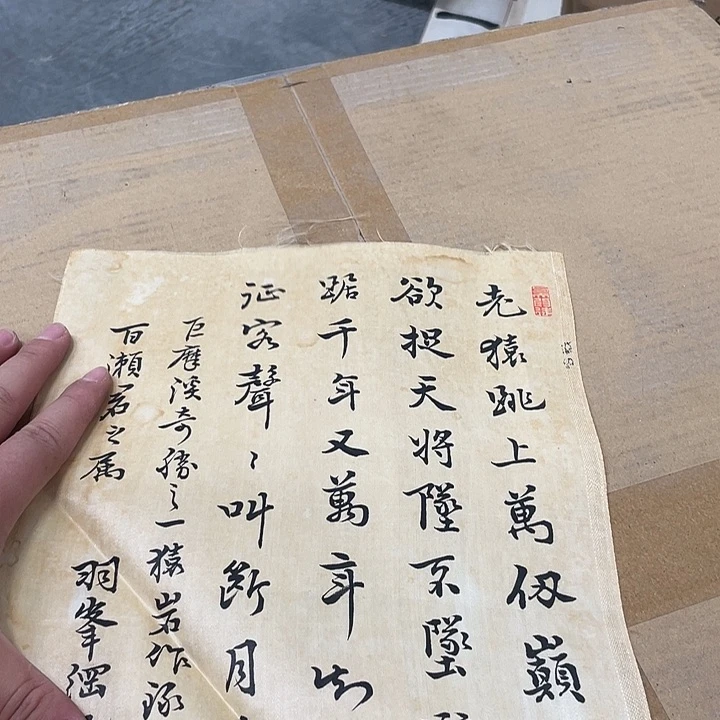 老猿跳上萬仭巔
欲捉天將墜不墜
踞千年又萬年
征客聲〻叫斷月
巨摩溪奇勝之一猿岩作
百瀨君之属
羽峯